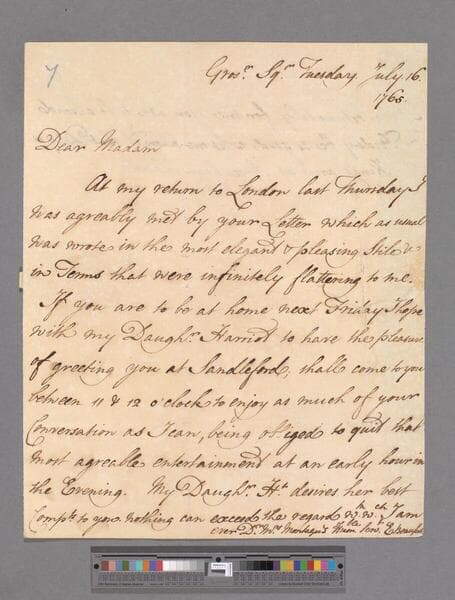 7
Gros:r Sq:r Tuesday July 16
1765
Dear Madam
At my return to London last Thursday I
was agreably met by your Letter which as usual
was wrote in the most elegant & pleasing Stile &
in Terms that were infinitely flattering to me.
If you are to be at home next Friday I hope
with my Daugh:r Harriot to have the pleasure
of greeting you at Sandleford; shall come to you
between 11 & 12 o'clock to enjoy as much of your
Conversation as I can, being obliged to quit that
most agreable entertainment at an early hour in
the Evening. My Daugh:r H:t desires her best
Comp:ts to you. nothing can exceed the regard w:th w:ch I am
ever D:r M:rs Montagu's Hum:ble Serv:t